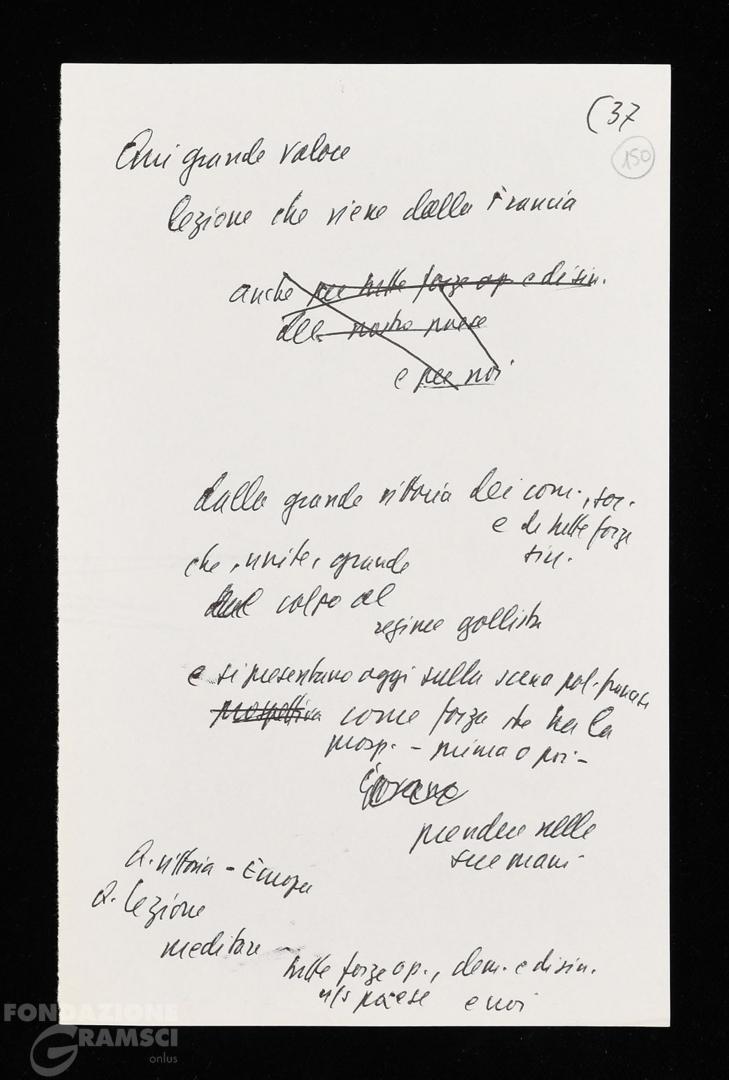 (37
150
Qui grande valore
lezione che viene dalla Francia
anche per tutte forze op e di sin.
del nostro paese
e per noi
dalla grande vittoria dei com., soc.
e di tutte forze
sin.
che, unite, grande
colpo al
regime gollista
e si presentano oggi sulla scena pol. francese
prospettiva come forza che ha la
prosp. - prima o poi -
prendere nelle
sue mani
Q. vittoria - Europa
Q. lezione
meditare
tutte forze op., dem. e di sin.
n/s paese e noi
FONDAZIONE
GRAMSCI
onlus